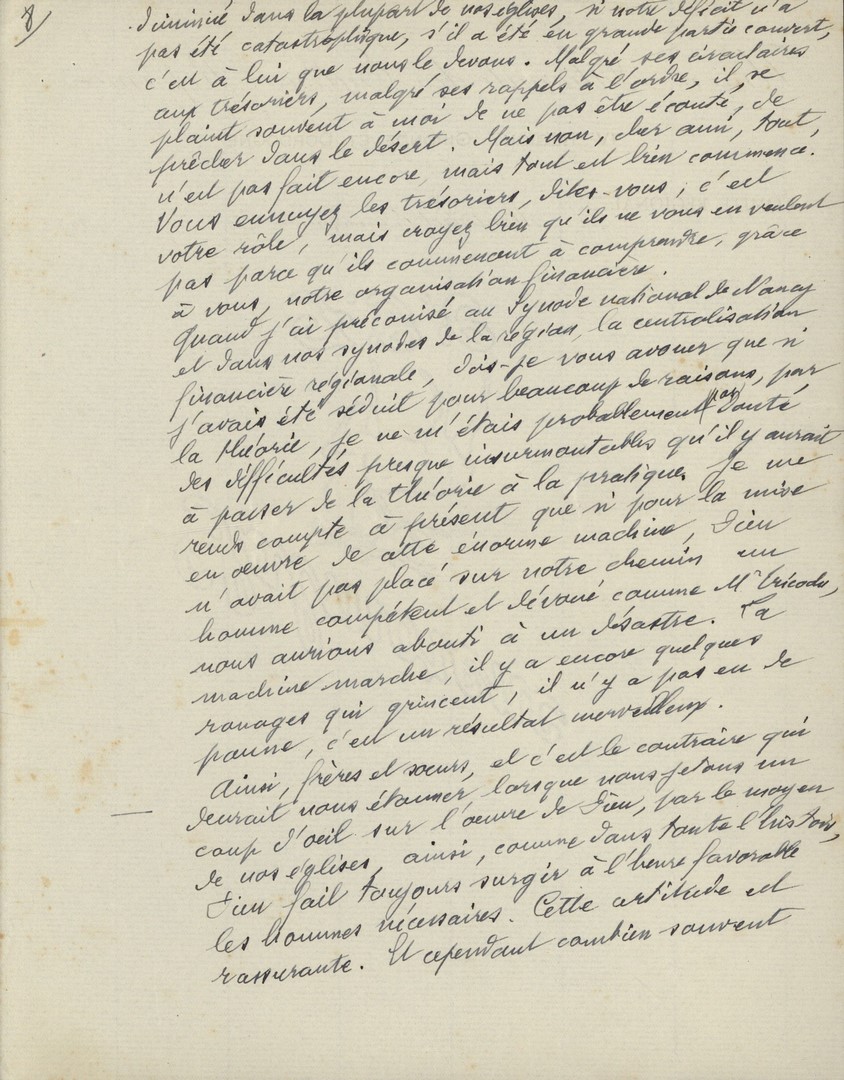 8/
diminué dans la plupart de nos églises, si notre déficit n'a
pas été catastrophique, s'il a été en grande partie couvert,
c'est à lui que nous le devons. Malgré ses circulaires
aux trésoriers, malgré ses rappels à l'ordre, il se
plaint souvent à moi de ne pas être écouté, de
prêcher dans le désert. Mais non, cher ami, tout,
n'est pas fait encore, mais tout est bien commencé.
Vous ennuyez les trésoriers, dites-vous ; c'est
votre rôle, mais croyez bien qu'ils ne vous en veulent
pas parce qu'ils commencent à comprendre, grâce
à vous, notre organisation financière.
Quand j'ai préconisé au Synode national de Nancy
et dans nos synodes de la région, la centralisation
financière régionale, dois-je vous avouer que si
j'avais été séduit pour beaucoup de raisons, par
la théorie, je ne m'étais probablement pas douté
des difficultés presque insurmontables qu'il y aurait
à passer de la théorie à la pratique. Je me
rends compte à présent que si pour la mise
en oeuvre de cette énorme machine, Dieu
n'avait pas placé sur notre chemin un
homme compétent et dévoué comme Mr Tricadu,
nous aurions abouti à un désastre. La
machine marche, il y a encore quelques
rouages qui grincent, il n'y a pas eu de
panne, c'est un résultat merveilleux.
Ainsi, frères et soeurs, et c'est le contraire qui
devrait nous étonner lorsque nous jetons un
coup d'oeil sur l'oeuvre de Dieu, par le moyen
de nos églises, ainsi, comme dans toute l'histoire,
Dieu fait toujours surgir à l'heure favorable
les hommes nécessaires. Cette certitude est
rassurante. Et cependant combien souvent